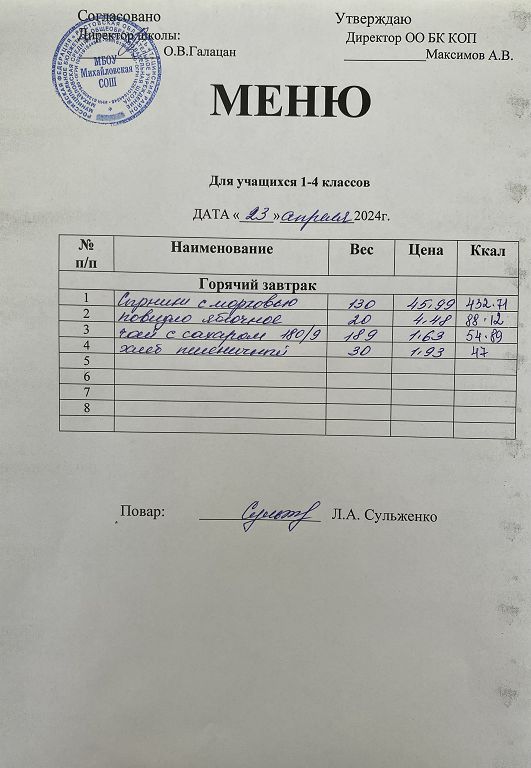 Согласовано Утверждаю
Директор школы: Директор ОО БК КОП
О.В.Галацан Максимов А.В.
МБОУ
Михайловская
СОШ
МЕНЮ
Для учащихся 1-4 классов
ДАТА « 23 » апреля 2024г.
№ п/п Наименование Вес Цена Ккал
Горячий завтрак
1 Сырники с морковью 130 45.99 432.71
2 повидло яблочное 20 4.48 88.12
3 чай с сахаром 180/9 189 1.63 54.89
4 хлеб пшеничный 30 1.93 47
5
6
7
8
Повар: Л.А. Сульженко